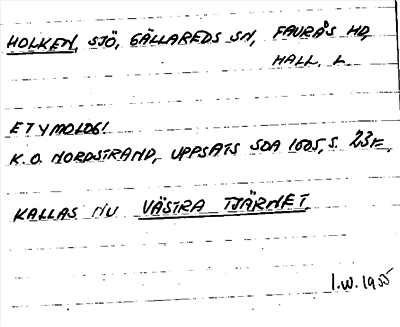 HOLKEN, SJÖ, GÄLLAREDS SN, FAURÅS HD,
HALL. L.
ETYMOLOGI
K.O. NORDSTRAND, UPPSATS SOA 1005, S. 23F.
KALLAS NU VÄSTRA TJÄRNET.
I.W. 1955